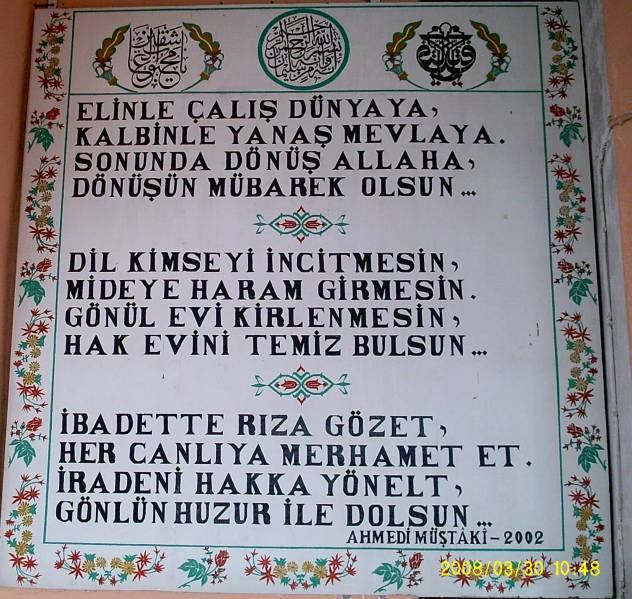 ELİNLE ÇALIŞ DÜNYAYA,
KALBİNLE YANAŞ MEVLAYA.
SONUNDA DÖNÜŞ ALLAHA,
DÖNÜŞÜN MÜBAREK OLSUN...
DİL KİMSEYİ İNCİTMESİN,
MİDEYE HARAM GİRMESİN.
GÖNÜL EVİ KİRLENMESİN,
HAK EVİNİ TEMİZ BULSUN...
İBADETTE RIZA GÖZET,
HER CANLIYA MERHAMET ET.
İRADENİ HAKKA YÖNELT,
GÖNLÜN HUZUR İLE DOLSUN...
AHMEDİ MÜŞTÂKİ-2002
2008/03/30 10:48